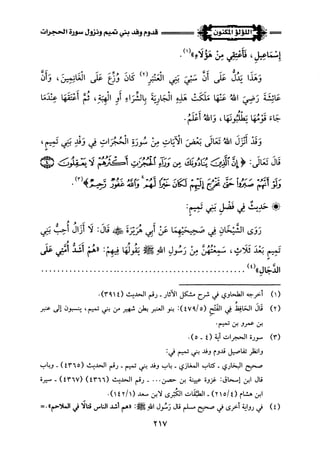 قدوم وفد بني تميم ونزول سورة الحجرات
اللؤلؤ المكنون
إِسْمَاعِيلَ، فَأَعْتِقِي مِنْ هَؤُلَاءِ»(١).
وَهَذَا يَدُلُّ عَلَى أَنَّ سَبْيَ بَنِي الْعَنْبَرِ(٢) كَانَ وُزِّعَ عَلَى الْغَانِمِينَ، وَأَنَّ
عَائِشَةَ رَضِيَ اللهُ عَنْهَا مَلَكَتْ هَذِهِ الْجَارِيَةَ بِالشِّرَاءِ أَوِ الْهِبَةِ، ثُمَّ أَعْتَقَهَا عِنْدَمَا
جَاءَ قَوْمُهَا يَطْلُبُونَهَا، وَاللهُ أَعْلَمُ.
وَقَدْ أَنْزَلَ اللهُ تَعَالَى بَعْضَ الْآيَاتِ مِنْ سُورَةِ الْحُجُرَاتِ فِي وَفْدِ بَنِي تَمِيمٍ،
قَالَ تَعَالَى: ﴿إِنَّ الَّذِينَ يُنَادُونَكَ مِن وَرَاءِ الْحُجُرَاتِ أَكْثَرُهُمْ لَا يَعْقِلُونَ
وَلَوْ أَنَّهُمْ صَبَرُوا حَتَّى تَخْرُجَ إِلَيْهِمْ لَكَانَ خَيْرًا لَّهُمْ وَاللَّهُ غَفُورٌ رَّحِيمٌ﴾(٣).
* حَدِيثٌ فِي فَضْلِ بَنِي تَمِيمٍ:
رَوَى الشَّيْخَانِ فِي صَحِيحَيْهِمَا عَنْ أَبِي هُرَيْرَةَ ﷺ قَالَ: لَا أَزَالُ أُحِبُّ بَنِي
تَمِيمٍ بَعْدَ ثَلَاثٍ، سَمِعْتُهُنَّ مِنْ رَسُولِ اللهِ ﷺ يَقُولُهَا فِيهِمْ: «هُمْ أَشَدُّ أُمَّتِي عَلَى
الدَّجَّالِ»(٤)
(١) أخرجه الطحاوي في شرح مشكل الآثار - رقم الحديث (٣٩١٤).
(٢) قَالَ الحَافِظُ فِي الفَتْحِ (٤٧٩/٥): بنو العنبر بطن شهير من بني تميم، ينسبون إلى عنبر
بن عمرو بن تميم.
(٣) سورة الحجرات آية (٤ - ٥).
وانظر تفاصيل قدوم وفد بني تميم في:
صحيح البخاري - كتاب المغازي - باب وفد بني تميم - رقم الحديث (٤٣٦٥) - وباب
قال ابن إسحاق: غزوة عيينة بن حصن... - رقم الحديث (٤٣٦٦) (٤٣٦٧) - سيرة
ابن هشام (٢١٥/٤) - الطَّبَقَات الكُبْرى لابن سعد (١٤٢/١).
(٤) في رواية أخرى في صحيح مسلم قال رَسُول اللهِ ﷺ: «هم أشد الناس قتالًا في الملاحم». =
٢١٧